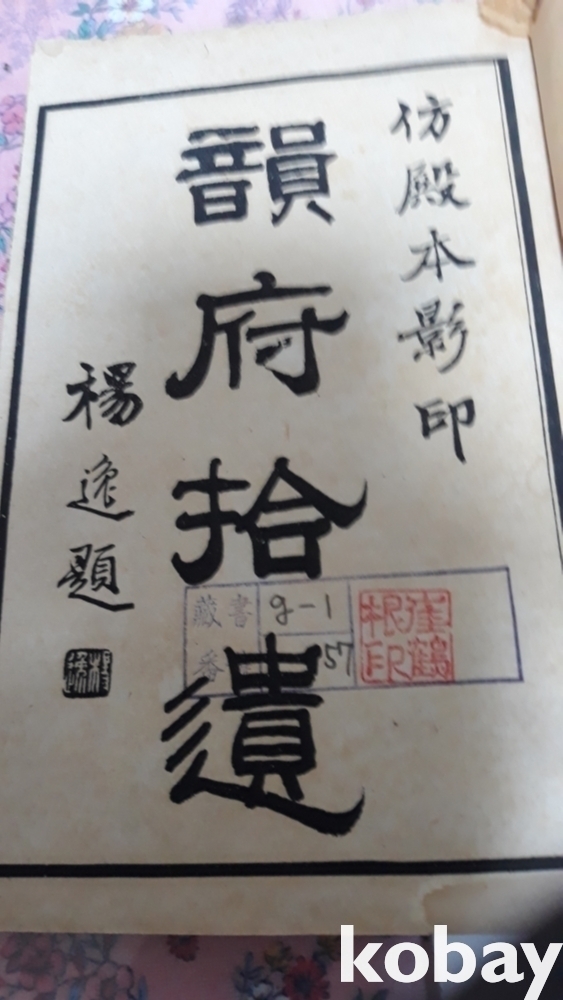 仿殿本影印
韻府拾遺
楊逸題
楊逸
藏書
g-1
番
57
崔鶴根印
kobay